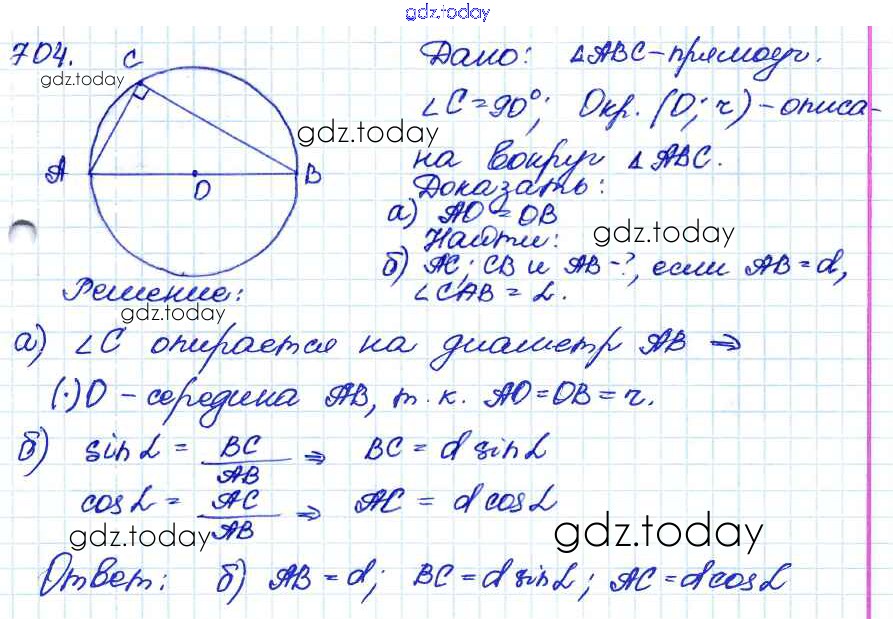 gdz.today
704.
C
gdz.today
A
O
B
Дано: ΔABC-прямоуг.
∠C=90°; Окр. (O; r) -описа-
gdz.today
на вокруг ΔABC.
Доказать:
а) AO=OB
Найти:
gdz.today
б) AC; CB и AB-?, если AB=d,
∠CAB = α.
Решение:
gdz.today
а) ∠C опирается на диаметр AB ⇒
(·)O - середина AB, т.к. AO=OB=r.
б) sinα = BC/AB ⇒ BC = d sinα
cosα = AC/AB ⇒ AC = d cosα
gdz.today
gdz.today
Ответ: б) AB=d; BC=d sinα; AC=d cosα